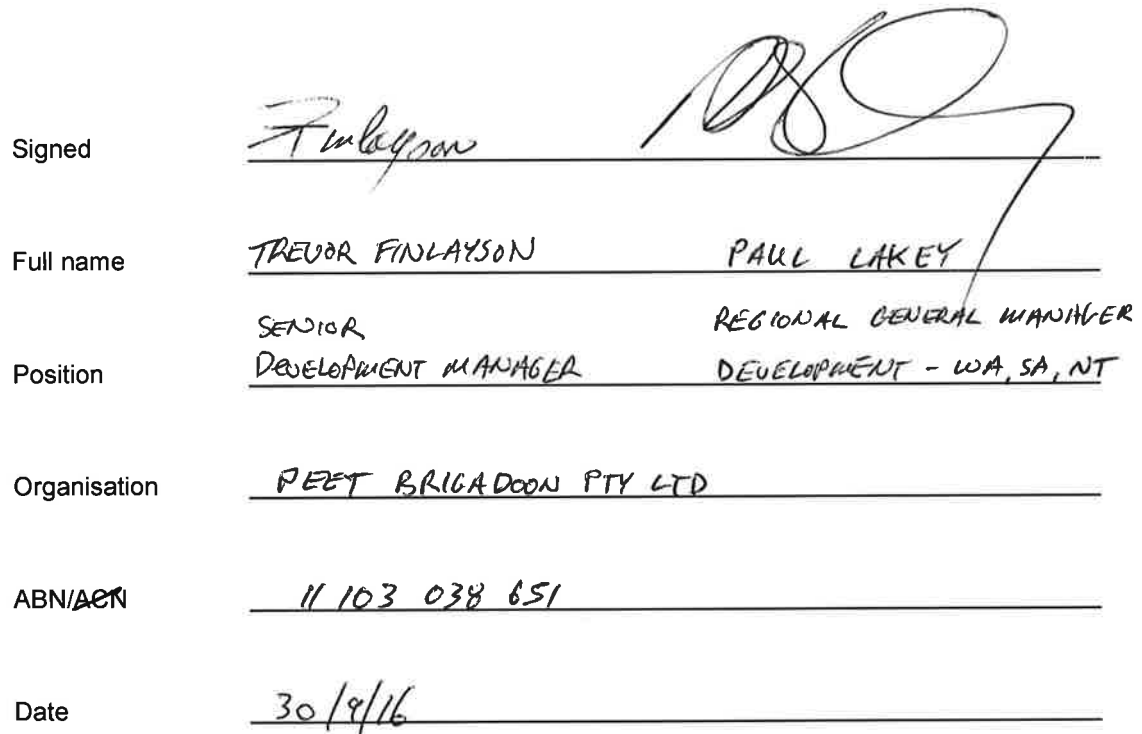 Signed Finlayson
Full name TREVOR FINLAYSON PAUL LAKEY
SENIOR REGIONAL GENERAL MANAGER
Position DEVELOPMENT MANAGER DEVELOPMENT - WA, SA, NT
Organisation PEET BRIGADOON PTY LTD
ABN/ACN 11 103 038 651
Date 30/9/16